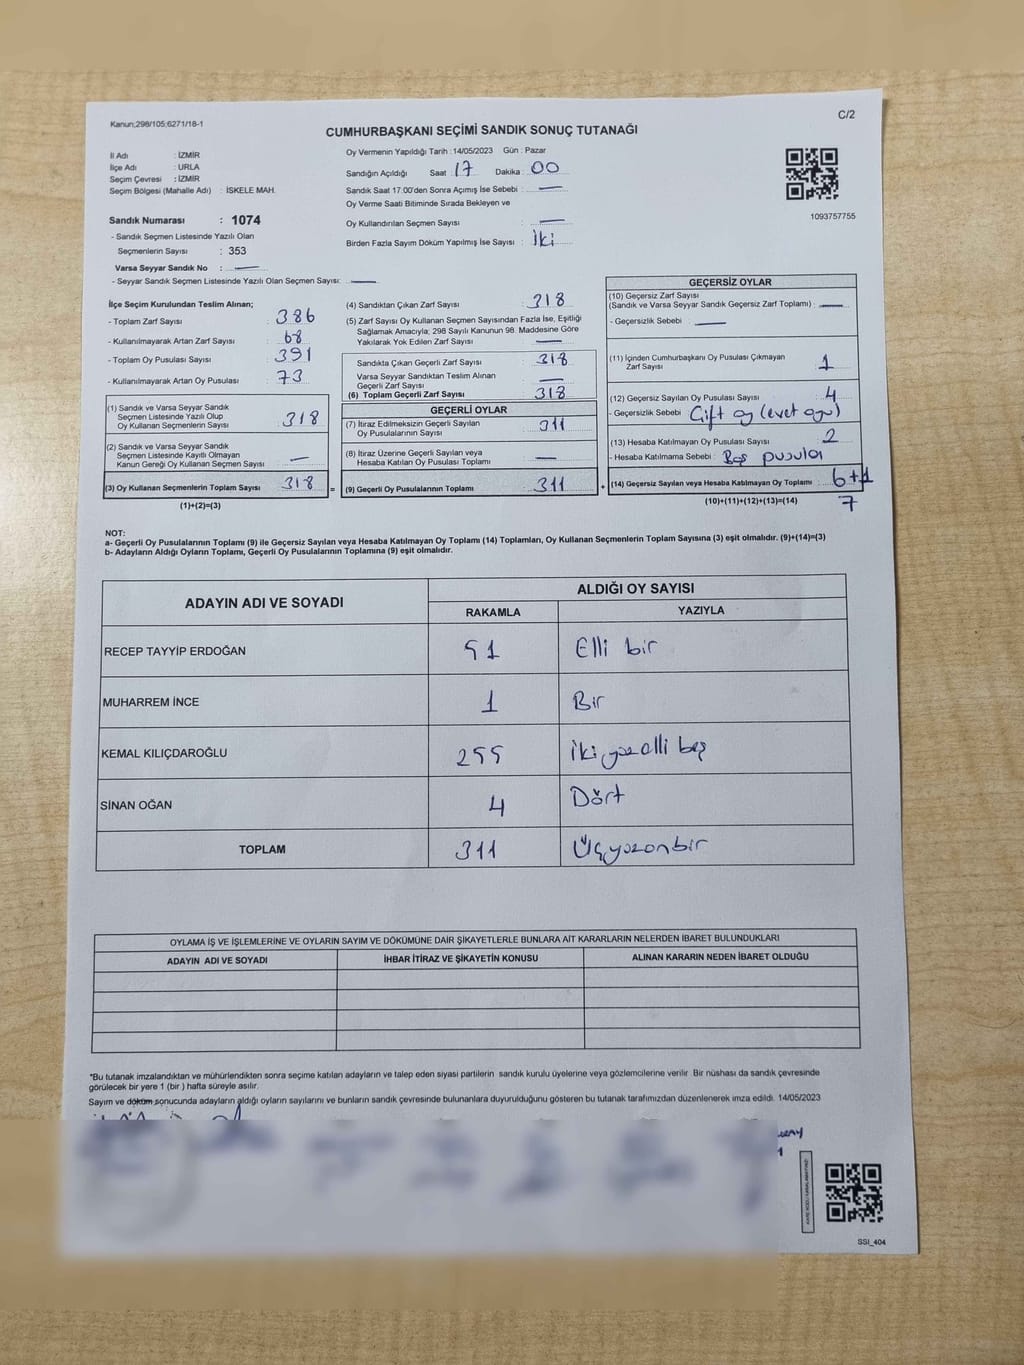 Kanun;298/105;6271/18-1
C/2
CUMHURBAŞKANI SEÇİMİ SANDIK SONUÇ TUTANAĞI
İl Adı : İZMİR
İlçe Adı : URLA
Seçim Çevresi : İZMİR
Seçim Bölgesi (Mahalle Adı) : İSKELE MAH.
Sandık Numarası : 1074
- Sandık Seçmen Listesinde Yazılı Olan
Seçmenlerin Sayısı : 353
Varsa Seyyar Sandık No : —
- Seyyar Sandık Seçmen Listesinde Yazılı Olan Seçmen Sayısı: —
Oy Vermenin Yapıldığı Tarih : 14/05/2023 Gün : Pazar
Sandığın Açıldığı Saat 17 Dakika : 00
Sandık Saat 17:00'den Sonra Açımış İse Sebebi : —
Oy Verme Saati Bitiminde Sırada Bekleyen ve
Oy Kullandırılan Seçmen Sayısı : —
Birden Fazla Sayım Döküm Yapılmış İse Sayısı : İki
1093757755
İlçe Seçim Kurulundan Teslim Alınan;
- Toplam Zarf Sayısı : 386
- Kullanılmayarak Artan Zarf Sayısı : 68
- Toplam Oy Pusulası Sayısı : 391
- Kullanılmayarak Artan Oy Pusulası : 73
(1) Sandık ve Varsa Seyyar Sandık
Seçmen Listesinde Yazılı Olup
Oy Kullanan Seçmenlerin Sayısı : 318
(2) Sandık ve Varsa Seyyar Sandık
Seçmen Listesinde Kayıtlı Olmayan
Kanun Gereği Oy Kullanan Seçmen Sayısı : —
(3) Oy Kullanan Seçmenlerin Toplam Sayısı : 318 =
(1)+(2)=(3)
(4) Sandıktan Çıkan Zarf Sayısı : 318
(5) Zarf Sayısı Oy Kullanan Seçmen Sayısından Fazla İse, Eşitliği
Sağlamak Amacıyla; 298 Sayılı Kanunun 98. Maddesine Göre
Yakılarak Yok Edilen Zarf Sayısı : —
Sandıkta Çıkan Geçerli Zarf Sayısı : 318
Varsa Seyyar Sandıktan Teslim Alınan
Geçerli Zarf Sayısı : —
(6) Toplam Geçerli Zarf Sayısı : 318
GEÇERLİ OYLAR
(7) İtiraz Edilmeksizin Geçerli Sayılan
Oy Pusulalarının Sayısı : 311
(8) İtiraz Üzerine Geçerli Sayılan veya
Hesaba Katılan Oy Pusulası Toplamı : —
(9) Geçerli Oy Pusulalarının Toplamı : 311 +
GEÇERSİZ OYLAR
(10) Geçersiz Zarf Sayısı
(Sandık ve Varsa Seyyar Sandık Geçersiz Zarf Toplamı) : —
- Geçersizlik Sebebi : —
(11) İçinden Cumhurbaşkanı Oy Pusulası Çıkmayan
Zarf Sayısı : 1
(12) Geçersiz Sayılan Oy Pusulası Sayısı : 4
- Geçersizlik Sebebi : Çift oy (evet oyu)
(13) Hesaba Katılmayan Oy Pusulası Sayısı : 2
- Hesaba Katılmama Sebebi : Boş pusula
(14) Geçersiz Sayılan veya Hesaba Katılmayan Oy Toplamı : 6+1
7
(10)+(11)+(12)+(13)=(14)
NOT:
a- Geçerli Oy Pusulasının Toplamı (9) ile Geçersiz Sayılan veya Hesaba Katılmayan Oy Toplamı (14) Toplamları, Oy Kullanan Seçmenlerin Toplam Sayısına (3) eşit olmalıdır. (9)+(14)=(3)
b- Adayların Aldığı Oyların Toplamı, Geçerli Oy Pusulalarının Toplamına (9) eşit olmalıdır.
ADAYIN ADI VE SOYADI
ALDIĞI OY SAYISI
RAKAMLA YAZIYLA
RECEP TAYYİP ERDOĞAN 51 Elli bir
MUHARREM İNCE 1 Bir
KEMAL KILIÇDAROĞLU 255 İkiyüzelli beş
SİNAN OĞAN 4 Dört
TOPLAM 311 Üçyüzonbir
OYLAMA İŞ VE İŞLEMLERİNE VE OYLARIN SAYIM VE DÖKÜMÜNE DAİR ŞİKAYETLERLE BUNLARA AİT KARARLARIN NELERDEN İBARET BULUNDUKLARI
ADAYIN ADI VE SOYADI İHBAR İTİRAZ VE ŞİKAYETİN KONUSU ALINAN KARARIN NEDEN İBARET OLDUĞU
*Bu tutanak imzalandıktan ve mühürlendikten sonra seçime katılan adayların ve talep eden siyasi partilerin sandık kurulu üyelerine veya gözlemcilerine verilir. Bir nüshası da sandık çevresinde
görülecek bir yere 1 (bir ) hafta süreyle asılır.
Sayım ve döküm sonucunda adayların aldığı oyların sayılarını ve bunların sandık çevresinde bulunanlara duyurulduğunu gösteren bu tutanak tarafımızdan düzenlenerek imza edildi. 14/05/2023
SSI_404